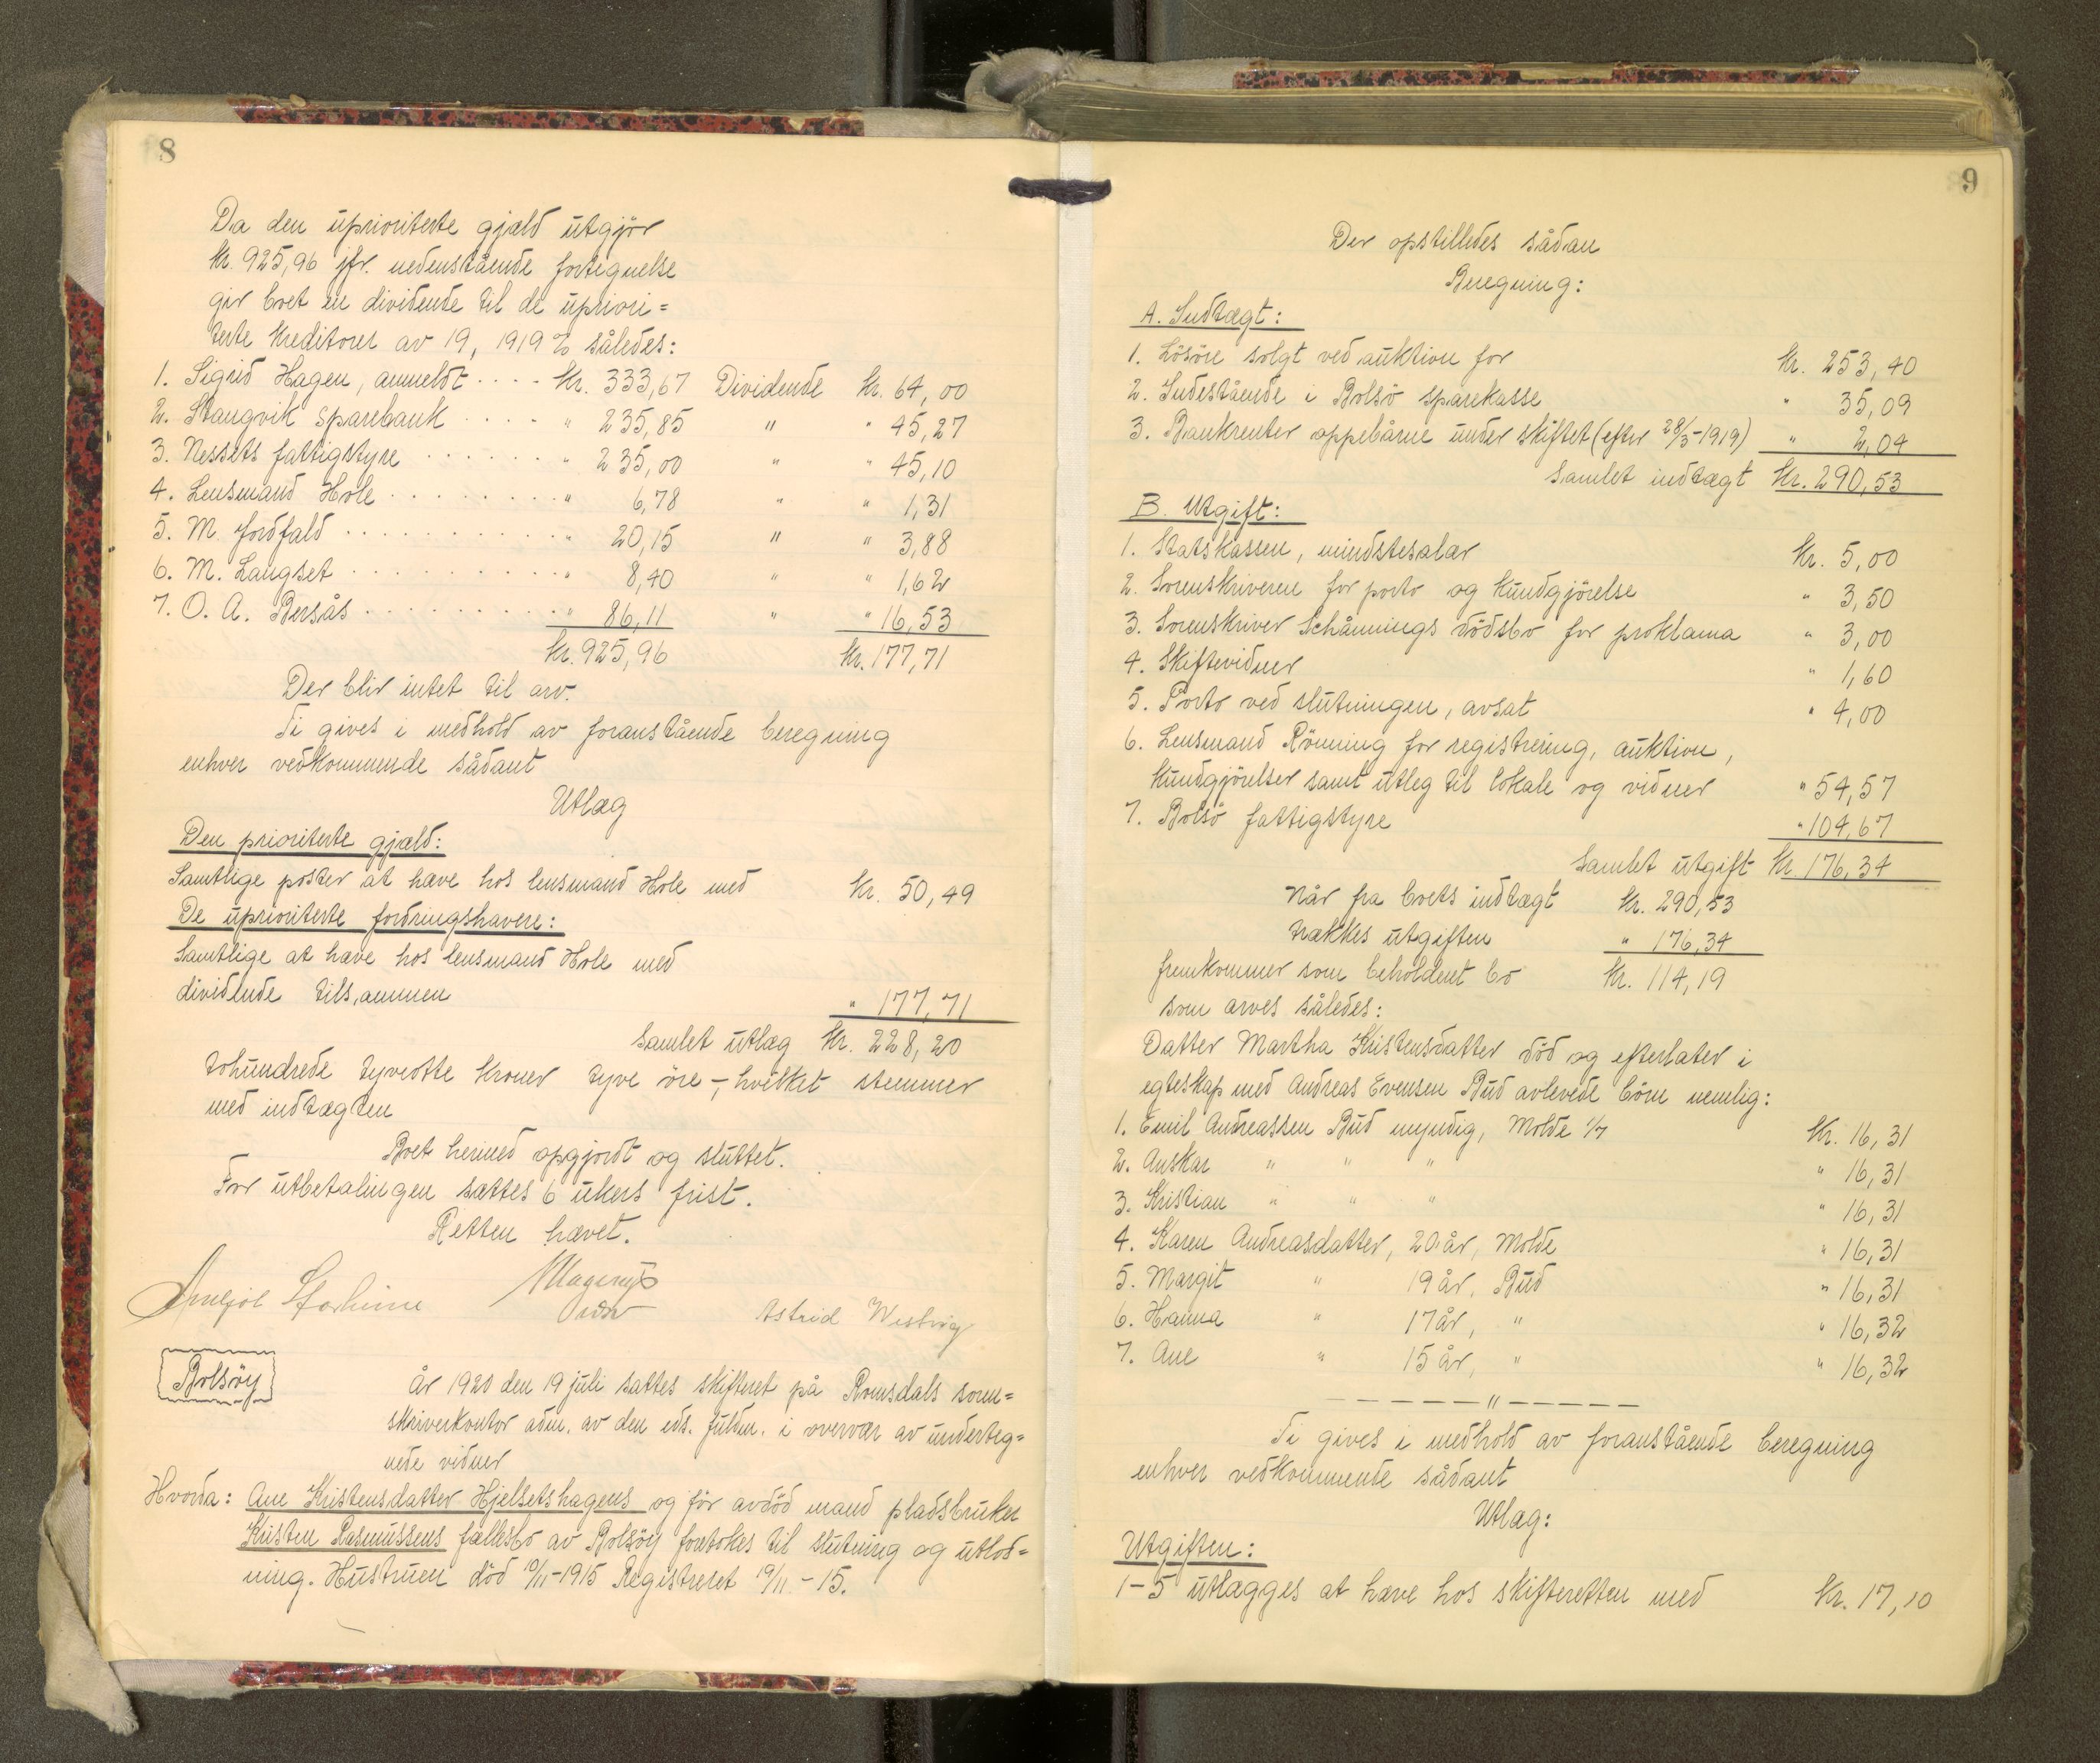 8
Da den uprioriterte gjæld utgjör
kr. 925,96 jfr. nedenstående fortegnelse
gir boet en dividende til de upriori=
terte kreditorer av 19,1919 % således:
1. Sigrid Hagen, anmeldt .... kr. 333,67 Dividende kr. 64,00
2. Stangvik sparebank .... " 235,85 " " 45,27
3. Nessets fattigstyre ...... " 235,00 " " 45,10
4. Lensmand Hole ........ " 6,78 " " 1,31
5. M. Jordfald .......... " 20,15 " " 3,88
6. M. Langset .......... " 8,40 " " 1,62
7. O. A. Bersås .......... " 86,11 " " 16,53
kr. 925,96 kr. 177,71
Der blir intet til arv.
Ti gives i medhold av foranstående beregning
enhver vedkommende sådant
Utlæg
Den prioriterte gjæld:
Samtlige poster at hæve hos lensmand Hole med kr. 50,49
De uprioriterte fordringshavere:
Samtlige at hæve hos lensmand Hole med
dividende tilsammen " 177,71
Samlet utlæg kr. 228,20
tohundrede tyveotte kroner tyve öre -, hvilket stemmer
med indtægten
Boet hermed opgjordt og sluttet.
For utbetalingen sattes 6 ukers frist.
Retten hævet.
Astrid Westvig
Bolsöy
År 1920 den 19 juli sattes skifteret på Romsdals soren=
skriverkontor adm. av den eds. fuldm. i overvær av underteg=
nede vidner
Hvorda: Ane Kristensdatter Hjelsetshagens og för avdöd mand pladsbruker
Kristen Rasmussens fællesbo av Bolsöy foretokes til slutning og utlod=
ning. Hustruen död 10/11-1915 Registreret 19/11.-15.
9
Der opstilledes sådan
Beregning:
A. Indtægt:
1. Lösöre solgt ved auktion for kr. 253,40
2. Indestående i Bolsö sparekasse " 35,09
3. Bankrenter oppebårne under skiftet (efter 28/3-1919) " 2,04
Samlet indtægt kr. 290,53
B. Utgift:
1. Statskassen, mindstesalær kr. 5,00
2. Sorenskriveren for porto og kundgjörelse " 3,50
3. Sorenskriver Schånnings dödsbo for proklama " 3,00
4. Skiftevidner " 1,60
5. Porto ved slutningen, avsat " 4,00
6. Lensmand Rönning for registrering, auktion,
kundgjörelser samt utleg til lokale og vidner " 54,57
7. Bolsö fattigstyre " 104,67
Samlet utgift kr. 176,34
Når fra boets indtægt kr. 290,53
trækkes utgiften " 176,34
fremkommer som beholdent bo kr. 114,19
som arves således:
Datter Martha Kristensdatter död og efterlater i
egteskap med Andreas Evensen Bud avlevede börn nemlig:
1. Emil Andreassen Bud myndig, Molde 1/7 kr. 16,31
2. Anskar " " " " 16,31
3. Kristian " " " " 16,31
4. Karen Andreasdatter, 20 år, Molde " 16,31
5. Margit " 19 år, Bud " 16,31
6. Hanna " 17 år, " " 16,32
7. Ane " 15 år, " " 16,32
— — — — — — " — — — — —
Ti gives i medhold av foranstående beregning
enhver vedkommende sådant
Utlæg:
Utgiften:
1-5 utlægges at hæve hos skifteretten med kr. 17,10